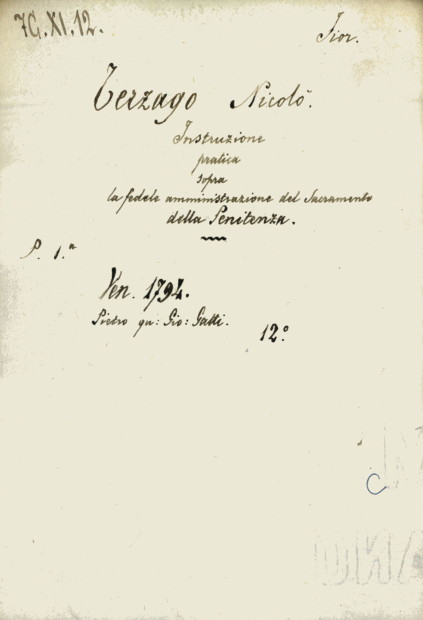 7G.XI.12.
Fior.
Terzago Nicolò.
Instruzione
pratica
sopra
la fedele amministrazione del Sacramento
della Penitenza.
P. 1.a
Ven. 1794.
Pietro qu: Gio: Gatti.
12.o
C